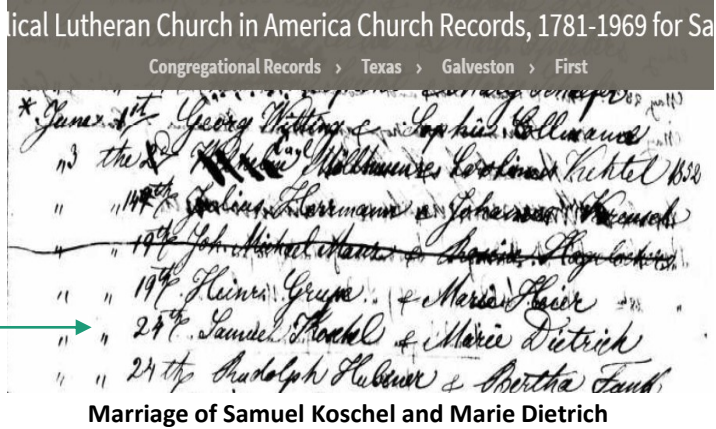 lical Lutheran Church in America Church Records, 1781-1969 for Sa
Congregational Records › Texas › Galveston › First
* June 1st Georg Witting & Sophie Collmann
"3 the 1852
" " 14th Julius Herrmann & Johanna
" " 19th Joh. Michael &
" " 19th Heinr. Grupe & Marie Heier
" " 24th Samuel Koschel & Marie Dietrich
" " 24th Rudolph Hubner & Bertha Funk
Marriage of Samuel Koschel and Marie Dietrich